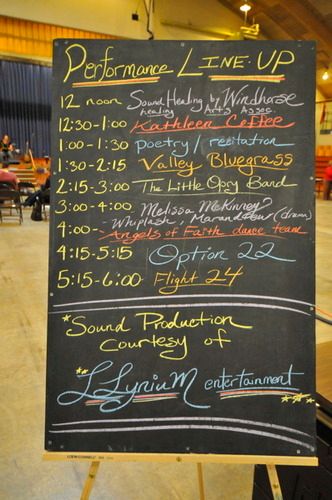 Performance LINE-UP
12 noon Sound Healing by Windhorse
healing Arts Assoc.
12:30-1:00 Kathleen Coffee
1:00-1:30 poetry/recitation
1:30-2:15 Valley Bluegrass
2:15-3:00 The Little Opry Band
3:00-4:00 Melissa McKinney?
- Whiplash (drama)
4:00- Angels of Faith dance team
4:15-5:15 Option 22
5:15-6:00 Flight 24
*Sound Production
Courtesy of
LLyniuM entertainment